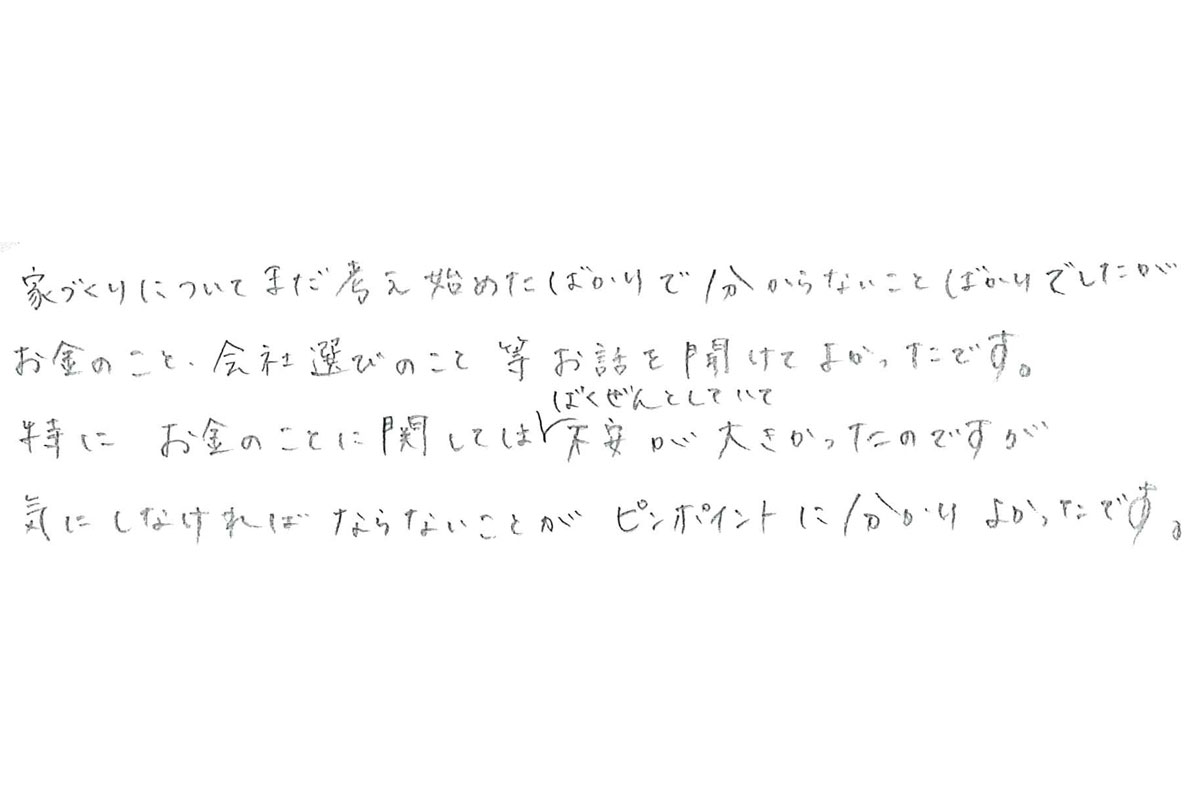 家づくりについてまだ考え始めたばかりで分からないことばかりでしたが
お金のこと、会社選びのこと等お話を聞けてよかったです。
特に お金のことに関してはばくぜんとしていて不安が大きかったのですが
気にしなければならないことが ピンポイントに分かりよかったです。